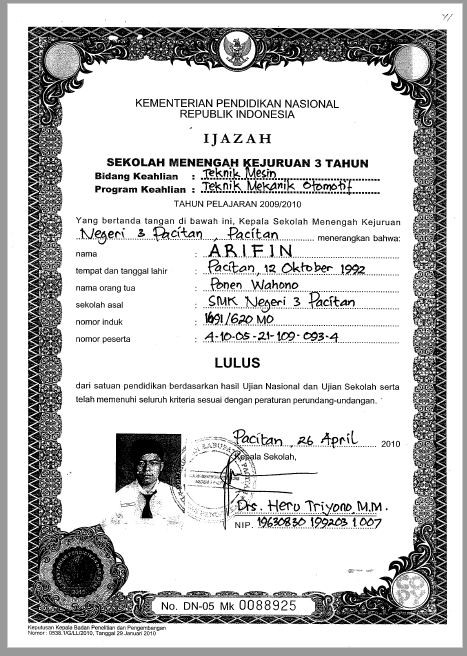 41
KEMENTERIAN PENDIDIKAN NASIONAL
REPUBLIK INDONESIA
IJAZAH
SEKOLAH MENENGAH KEJURUAN 3 TAHUN
Bidang Keahlian : Teknik Mesin
Program Keahlian : Teknik Mekanik Otomotif
TAHUN PELAJARAN 2009/2010
Yang bertanda tangan di bawah ini, Kepala Sekolah Menengah Kejuruan
Negeri 3 Pacitan, Pacitan menerangkan bahwa:
nama : ARIFIN
tempat dan tanggal lahir : Pacitan, 12 Oktober 1992
nama orang tua : Ponen Wahono
sekolah asal : SMK Negeri 3 Pacitan
nomor induk : 1691/620 MO
nomor peserta : 4-10-05-21-109-093-4
LULUS
dari satuan pendidikan berdasarkan hasil Ujian Nasional dan Ujian Sekolah serta
telah memenuhi seluruh kriteria sesuai dengan peraturan perundang-undangan.
Pacitan, 26 April 2010
Kepala Sekolah,
Drs. Heru Triyono, M.M.
NIP. 19630830 199203 1 007
No. DN-05 Mk 0088925
Keputusan Kepala Badan Penelitian dan Pengembangan
Nomor : 0538.1/G/LL/2010, Tanggal 29 Januari 2010